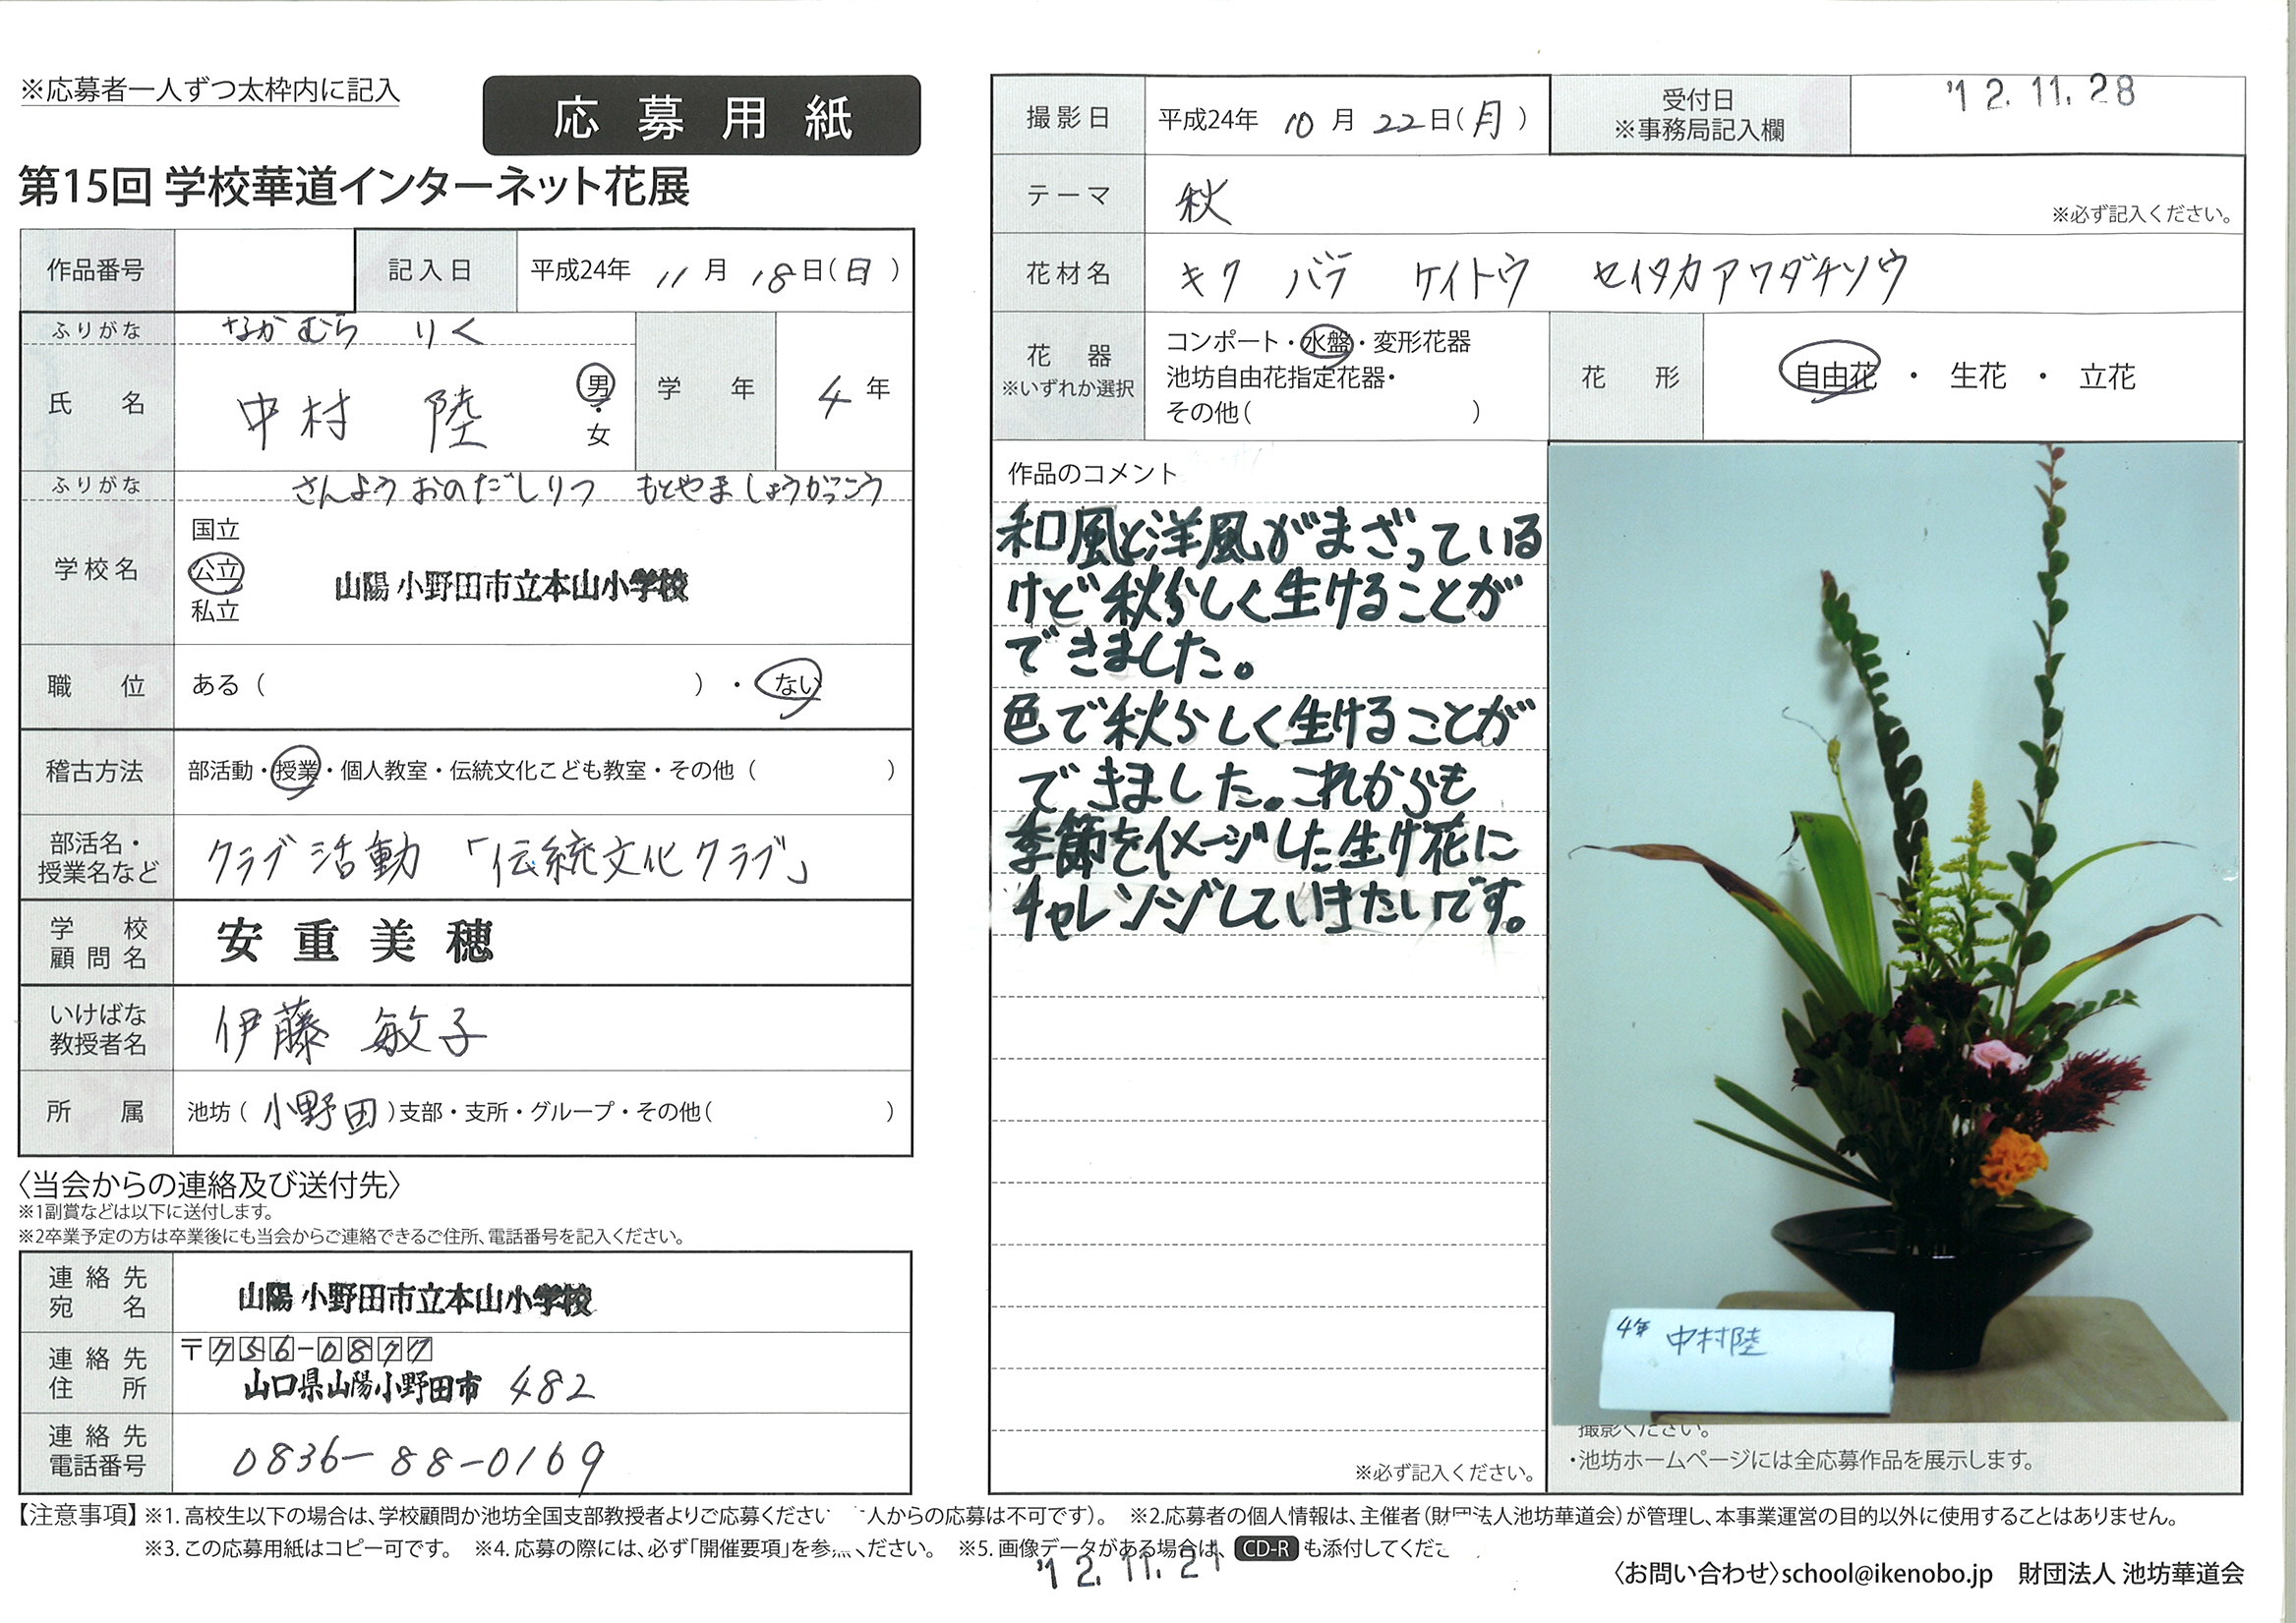 ※応募者一人ずつ太枠内に記入
応募用紙
第15回 学校華道インターネット花展
作品番号
記入日 平成24年 11月 18日(日)
ふりがな なかむら りく
氏名 中村 陸 男・女
学年 4年
ふりがな さんようおのだしりつ もとやましょうがっこう
学校名
国立
公立
私立
山陽小野田市立本山小学校
職位 ある( )・ない
稽古方法 部活動・授業・個人教室・伝統文化こども教室・その他( )
部活名・
授業名など
クラブ活動 「伝統文化クラブ」
学校
顧問名
安重美穂
いけばな
教授者名
伊藤 敏子
所属 池坊(小野田)支部・支所・グループ・その他( )
〈当会からの連絡及び送付先〉
※1副賞などは以下に送付します。
※2卒業予定の方は卒業後にも当会からご連絡できるご住所、電話番号を記入ください。
連絡先
宛名
山陽小野田市立本山小学校
連絡先
住所
〒756-0877
山口県山陽小野田市 482
連絡先
電話番号
0836-88-0169
撮影日 平成24年 10月 22日(月)
受付日
※事務局記入欄
'12.11.28
テーマ 秋
※必ず記入ください。
花材名 キク バラ ケイトウ セイタカアワダチソウ
花器
※いずれか選択
コンポート・水盤・変形花器
池坊自由花指定花器・
その他( )
花形 自由花・生花・立花
作品のコメント
和風と洋風がまざっている
けど秋らしく生けることが
できました。
色で秋らしく生けることが
できました。これからも
季節をイメージした生け花に
チャレンジしていきたいです。
※必ず記入ください。
4年 中村陸
撮影ください。
・池坊ホームページには全応募作品を展示します。
【注意事項】※1. 高校生以下の場合は、学校顧問か池坊全国支部教授者よりご応募ください 人からの応募は不可です)。 ※2.応募者の個人情報は、主催者(財団法人池坊華道会)が管理し、本事業運営の目的以外に使用することはありません。
※3. この応募用紙はコピー可です。 ※4. 応募の際には、必ず「開催要項」を参 ください。 ※5. 画像データがある場合は、CD-Rも添付してくだ
'12.11.21
〈お問い合わせ〉school@ikenobo.jp 財団法人 池坊華道会